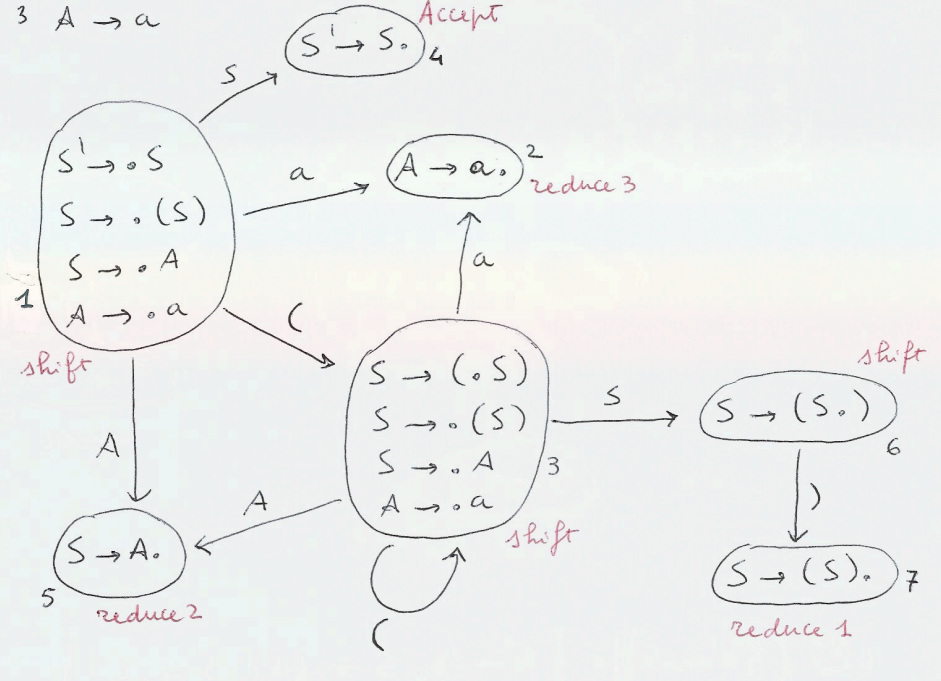 3 A → a
Accept
S' → S.
4
S
S' → . S
S → . (S)
S → . A
A → . a
1
shift
a
A → a.
2
reduce 3
a
(
S → (. S)
S → . (S)
S → . A
A → . a
3
shift
S
shift
S → (S.)
6
)
S → (S).
7
reduce 1
A
A
S → A.
5
reduce 2
(